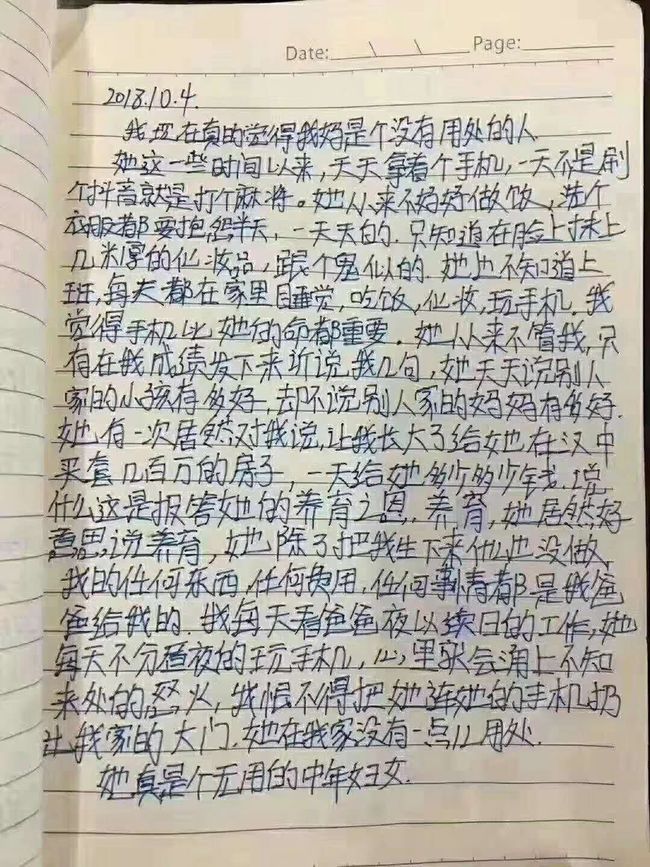 Date: \ \ Page:
2018.10.4.
我现在真的觉得我妈是个没有用处的人
她这一些时间以来,天天拿着个手机,一天不是刷
个抖音就是打个麻将。她从来不好好做饭,洗个
衣服都要抱怨半天,一天天的.只知道在脸上抹上
几米厚的化妆品,跟个鬼似的.她也不知道上
班,每天都在家里睡觉,吃饭,化妆,玩手机.我
觉得手机比她的命都重要。她从来不管我,只
有在我成绩发下来近说我几句,她天天说别人
家的小孩有多好,却不说别人家的妈妈有多好.
她有一次居然对我说,让我长大了给她在汉中
买套几百万的房子,一天给她多少多少钱.说
什么这是报答她的养育之恩,养育,她居然好
意思说养育,她除了把我生下来什么也没做,
我的任何东西,任何费用,任何事情都是我爸
爸给我的.我每天看爸爸夜以续日的工作,她
每天不分昼夜的玩手机,心里就会涌上不知
来处的怒火,我恨不得把她连她的手机扔
出我家的大门.她在我家没有一点儿用处.
她真是个无用的中年妇女.